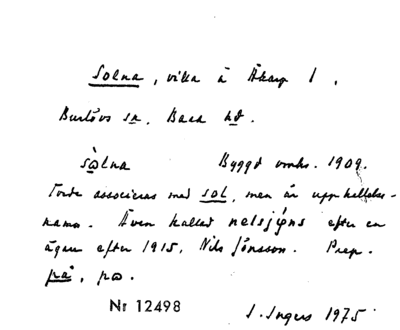 Solna, villa å Åkarp 1.
Burlövs sn, Bara hd.
sωlna Byggd omkr. 1909.
Torde associeras med sol, men är uppkallelse-
namn. Även kallad nelsjǫns efter en
ägare efter 1915, Nils Jönsson. Prep.
på, pω.
Nr 12498
I. Ingers 1975